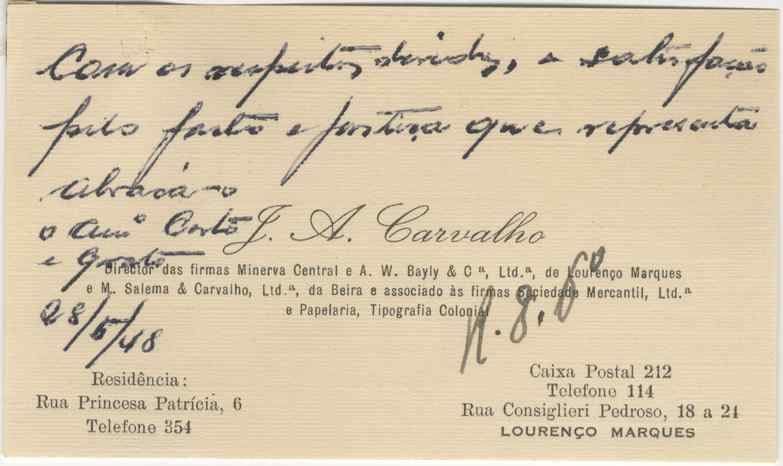 Com os respeitos devidos, a satisfação
pelo facto e justiça que representa
abraça-o
o am.º Certo
e grato
J. A. Carvalho
Director das firmas Minerva Central e A. W. Bayly & C.ª, Ltd.ª, de Lourenço Marques
e M. Salema & Carvalho, Ltd.ª, da Beira e associado às firmas Sociedade Mercantil, Ltd.ª
e Papelaria, Tipografia Colonial
28/5/48
Residência:
Rua Princesa Patrícia, 6
Telefone 354
Caixa Postal 212
Telefone 114
Rua Consiglieri Pedroso, 18 a 24
LOURENÇO MARQUES